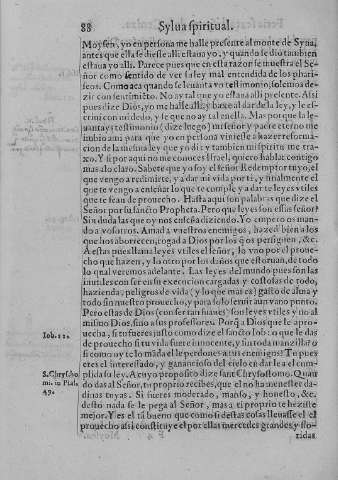 88 Sylua spiritual.
Moysen, yo en persona me halle presente al monte de Syna,
antes que ella se diesse alli estaua yo, y quando se dio tambien
estaua yo alli. Parece pues que en esta razon se muestra el Se-
ñor como sentido de ver su ley mal entendida de los phari-
seos. Como aca quando se leuanta vn testimonio, solemos de-
zir con sentimiẽto. No ay tal que yo estaua alli presente. Assi
pues dize Dios, yo me halle alli, y base al dar de la ley, y le es-
criui con mi dedo, y se que no ay tal en ella. Mas porque la le-
uantays testimonio (dize luego) mi Señor y padre eterno me
imbio aca para que yo en persona viniesse a hazer reforma-
cion de la mesma ley que yo di y tambien mi spiritu me tra-
xo. Y si por aqui no me conoces Israel, quiero hablar contigo
mas alo claro. Sabete que yo soy el señor Redemptor tuyo, el
que vengo a redimirte, y a dar mi vida por ti, y finalmente el
que te vengo a enseñar lo que te cumple y a dar te leyes vtiles
que te sean de prouecho. Hasta aqui son palabras que dize el
Señor por su sancto Propheta. Pero que leyes son essas señor
Sin duda las que oy nos enseña diziendo. Yo empero os man-
do a vosotros. Amad a vuestros enemigos, hazed bien a los
que hos aborrecen, rogad a Dios por los q̃ os persiguen, &c.
A estas pues llama leyes vtiles el señor, lo vno por el proue-
cho que hazen, y la otro por los daños que estoruan, de todo
lo qual veremos adelante. Las leyes del mundo pues son las
inutiles con ser en su execucion cargadas y costosas de todo,
hazienda, peligros de vida (y lo que mas es) gasto de alma y
todo sin nuestro prouecho, y para solo seruir a un vano punto.
Pero estas de Dios (con ser tan suaues) son leyes vtiles y no al
mismo Dios, sino a sus professores. Porq̃ a Dios que le apro-
Iob. 22. uecha, si tu fueres justo como dize el sancto Iob: o que le das
de prouecho si tu vida fuere innocente, y sin toda manzilla? o
si como oy te lo mãda el le perdones a tus enemigos? Tu pues
eres el interessado, y ganancioso del cielo en dar lea el cum-
S. Chryso plida su ley. A cuyo proposito dize sant Chrysostomo. Quan
mi. in Psal. do das al Señor, tu proprio recibes, que el no ha menester da-
49. dinas tuyas. Si fueres moderado, manso, y honesto, &c.
desto nada se le pega al Señor, mas a ti proprio te hazes te
mejor. Y es el tã bueno que como si destas cosas lleuasse el el
prouecho assi constituye el por ellas mercedes grandes, y flo-
ridas